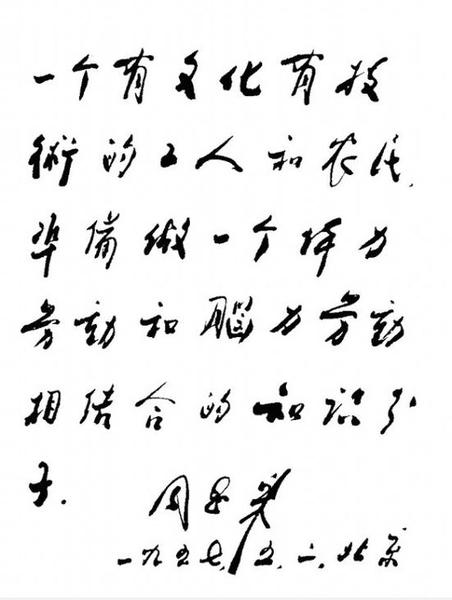 一个有文化有技
術的工人和农民,
准備做一个体力
劳動和腦力劳動
相結合的知識分
子.
周恩来
一九五七,五.二.北京